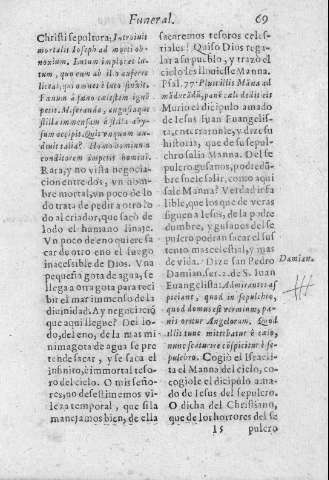 Funeral. 69
Christi sepultura: Introiuit
mortalis Ioseph ad morti ob-
noxium. Intum implorat lu-
tum, quo eum ab illo auferre
liceat, qui omnes è luto finxit.
Fœnum à fœno cælestem ignẽ
petit. M. feranda, angustaque
stilla immensam à stilla abys-
sum accipit. Quis vnquam au-
diuit talia? Homo hominum
conditorem impetit homini.
Rara, y no vista negocia-
cion entre dos, vn nom-
bre mortal, vn poco de lo
do trata de pedir a otro lo
do al criador, que sacò de
lodo el humano linaje.
Vn poco de eno quiere sa
car de otro eno el fuego
inaccessible de Dios. Vna
pequeña gota de agua, se
llega a otra gota para reci
bir el mar immenso de la
diuinidad. Ay negociaciõ
que aqui llegue? Del lo-
do, del eno, de la mas mi
nima gota de agua se pre
tende sacar, y se saca el
infinito, è immortal teso-
ro del cielo. O mis seño-
res, no desestimemos vi-
leza temporal, que si la
manejamos bien, de ella
sacaremos tesoros celes-
tiales! Quiso Dios rega-
lar a su pueblo, y trazò el
cielo les llouiesse Manna.
Psal. 77. Pluit illis Mãna ad
mãducãdũ, panẽ cæli dedit eis
Murio el dicipulo amado
de Iesus Iuan Euangelis-
ta, enterraronle, y dize su
historia, que de su sepul-
chro salia Manna. Del se-
pulcro gusanos, podredũ-
bre suele salir, como aqui
sale Manna? Verdad infa
lible, que los que de veras
siguen a Iesus, de la podre
dumbre, y gusanos del se
pulcro podran sacar el sus
tento mas celestial, y mas
de vida. Dize san Pedro
Damian. ser. 2. de S. Iuan Damian.
Euangelista: Admirantes as
piciant, quod in sepulchro,
quod domus est verminum, pa-
nis oritur Angelorum. Quod
illis tunc mittebatur è cælo,
nunc scaturire cõspicitur è se-
pulcro. Cogiò el Israeli-
ta el Manna del cielo, co-
giole el dicipulo ama-
do de Iesus del sepulcro.
O dicha del Christiano,
que de los horrores del se
I5 pulcro